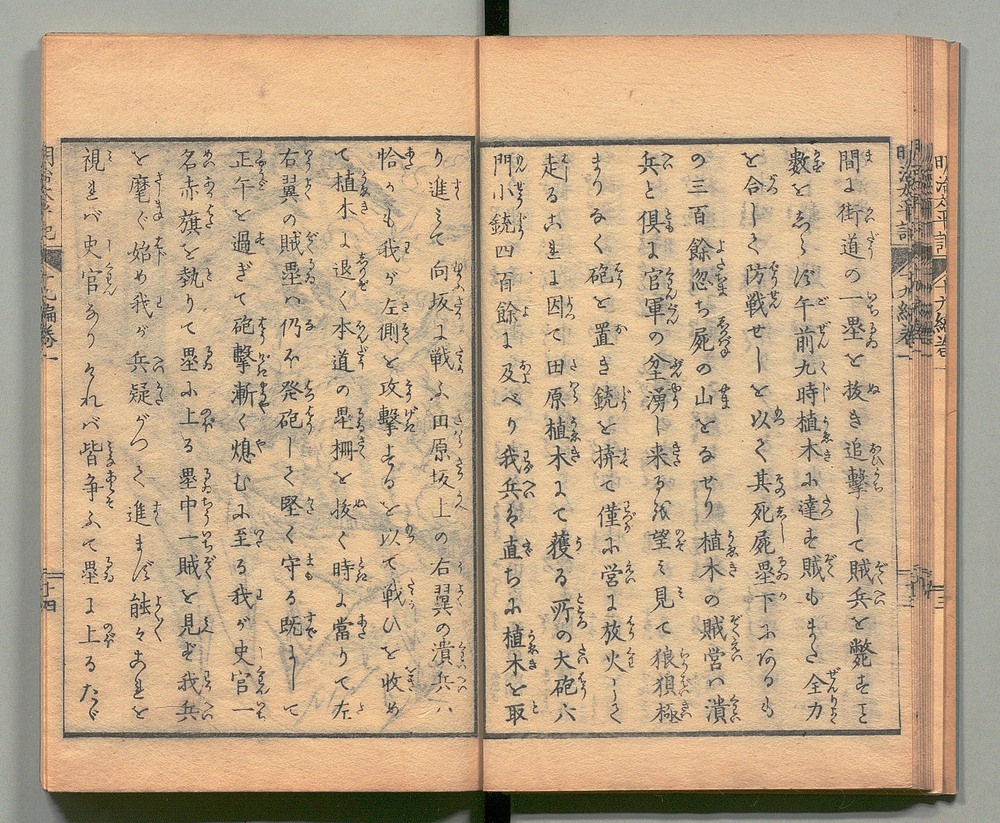 間に街道の一塁を抜き追撃して賊兵を斃すこと
数をしらず午前九時植木に達す賊もまた全力
を合して防戦せしを以て其死屍塁下にあるも
の三百餘忽ち屍の山をなせり植木の賊営ハ潰
兵と倶に官軍の坌湧し来るを望み見て狼狽極
まりなく砲を置き銃を捹て僅に営に放火して
走るこれに因て田原植木にて獲る所の大砲六
門小銃四百餘に及べり我兵は直ちに植木を取
り進みて向坂に戦ふ田原坂上の右翼の潰兵ハ
恰かも我が左側を攻撃するを以て戦ひを收め
て植木に退く本道の塁柵を抜く時に當りて左
右翼の賊塁ハ仍ホ発砲して堅く守る既にして
正午を過ぎて砲撃漸く熄むに至る我が史官一
名赤旗を執りて塁に上る塁中一賊を見ず我兵
を麾ぐ始め我が兵疑がつて進まず能々これを
視れバ史官なりけれバ皆争ふて塁に上るたゞ
明治太平記
十九編巻一
十四